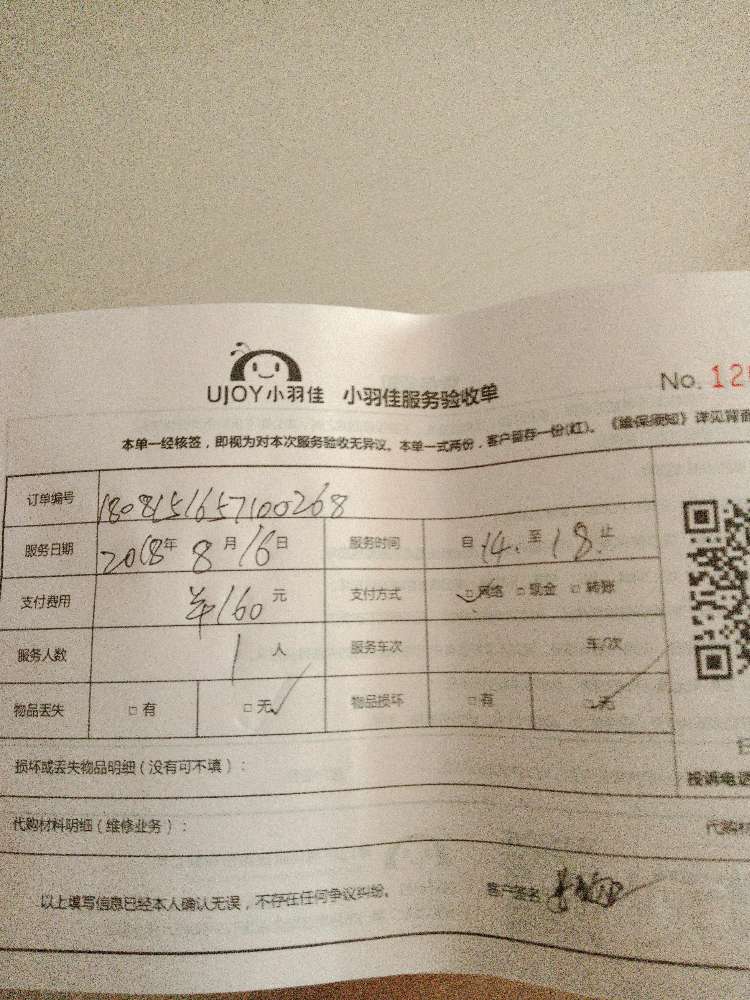 UJOY小羽佳 小羽佳服务验收单 No. 12
本单一经核签，即视为对本次服务验收无异议。本单一式两份，客户留存一份(红)。《验保须知》详见背面
订单编号 1808151657100268
服务日期 2018年 8月 16日 服务时间 自 14. 至 18 止
支付费用 ￥160 元 支付方式 □网络 □现金 □转账
服务人数 1 人 服务车次 车/次
物品丢失 □有 □无 物品损坏 □有 □无
损坏或丢失物品明细（没有可不填）：
投诉电话
代购材料明细（维修业务）： 代购材
以上填写信息已经本人确认无误，不存在任何争议纠纷。 客户签名